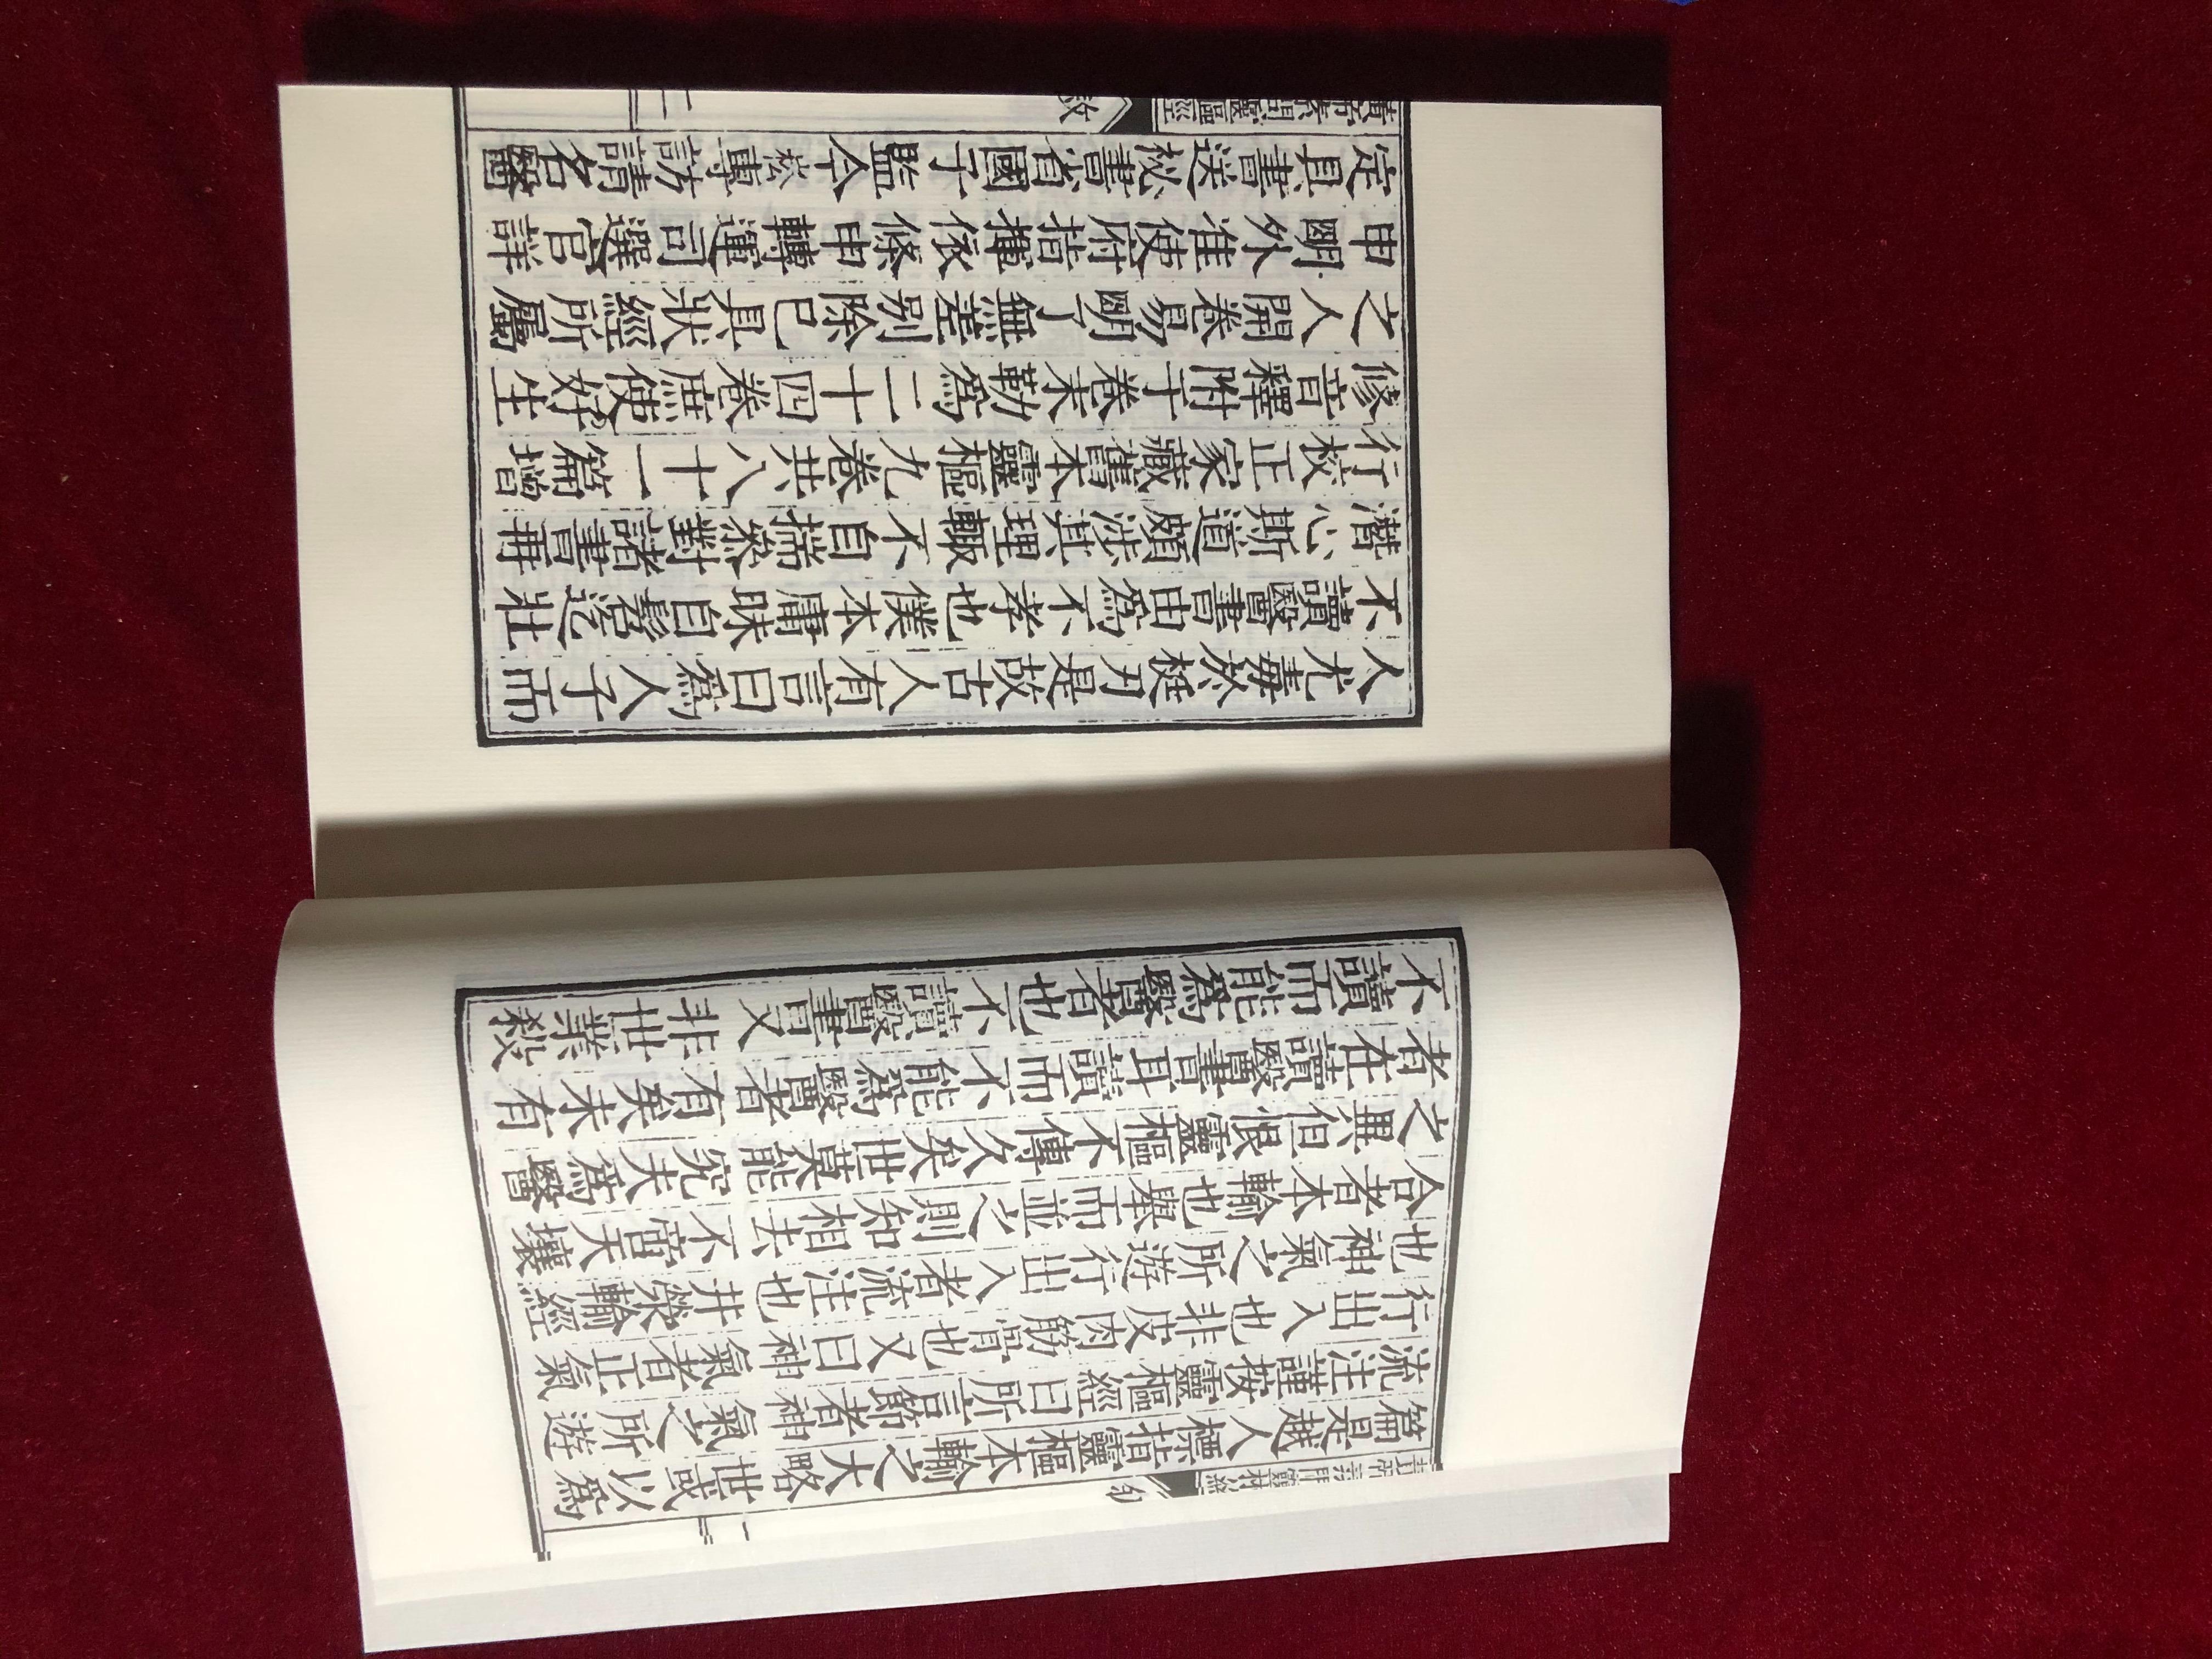 篇是越人標指靈樞本輸之大略世或以爲
流注謹按靈樞經曰所言節者神氣之所遊
行出入也非皮肉筋骨也又曰神氣者正氣
也神氣之所遊行出入者流注也井滎輸經
合者本輸也舉而並之則知相去不啻天壤
之異但恨靈樞不傳久矣世莫能究夫爲醫
者在讀醫書耳讀而不能爲醫者有矣未有
不讀而能爲醫者也不讀醫書又非世業殺
人尤毒於梃刃是故古人有言曰爲人子而
不讀醫書由爲不孝也僕本庸昧自髫迄壯
潛心斯道頗涉其理輙不自揣參對諸書再
行校正家藏舊本靈樞九卷共八十一篇增
修音釋附于卷末勒爲二十四卷庶使好生
之人開卷易明了無差別除已具狀經所屬
申明外准使府指揮依條申轉運司選官詳
定具書送秘書省國子監今崧專訪請名醫
黃帝素問靈樞經 敘 二